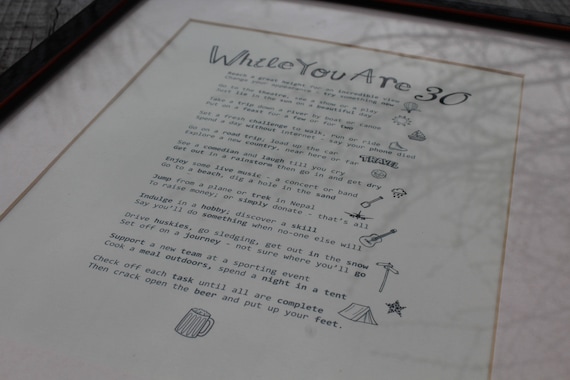 While You Are 30
Reach a great height for an incredible view
Change your
try something new
Go to the theatre, see a show or a play
Just lie in the sun on a beautiful day
Take a trip down a river by boat or canoe
Put on a feast for a few or for two
Set a fresh challenge to walk, run or ride
Spend a day without internet - say your phone died
Go on a road trip, load up the car
Explore a new country, near here or far
TRAVEL
See a comedian and laugh till you cry
Get out in a rainstorm then go in and get dry
Enjoy some live music - a concert or band
Go to a beach, dig a hole in the sand
Jump from a plane or trek in Nepal
To raise money; or simply donate - that's all
Indulge in a hobby; discover a skill
Say you'll do something when no-one else will
Drive huskies, go sledging, get out in the snow
Set off on a journey - not sure where you'll go
Support a new team at a sporting event
Cook a meal outdoors, spend a night in a tent
Check off each task until all are complete
Then crack open the beer and put up your feet.